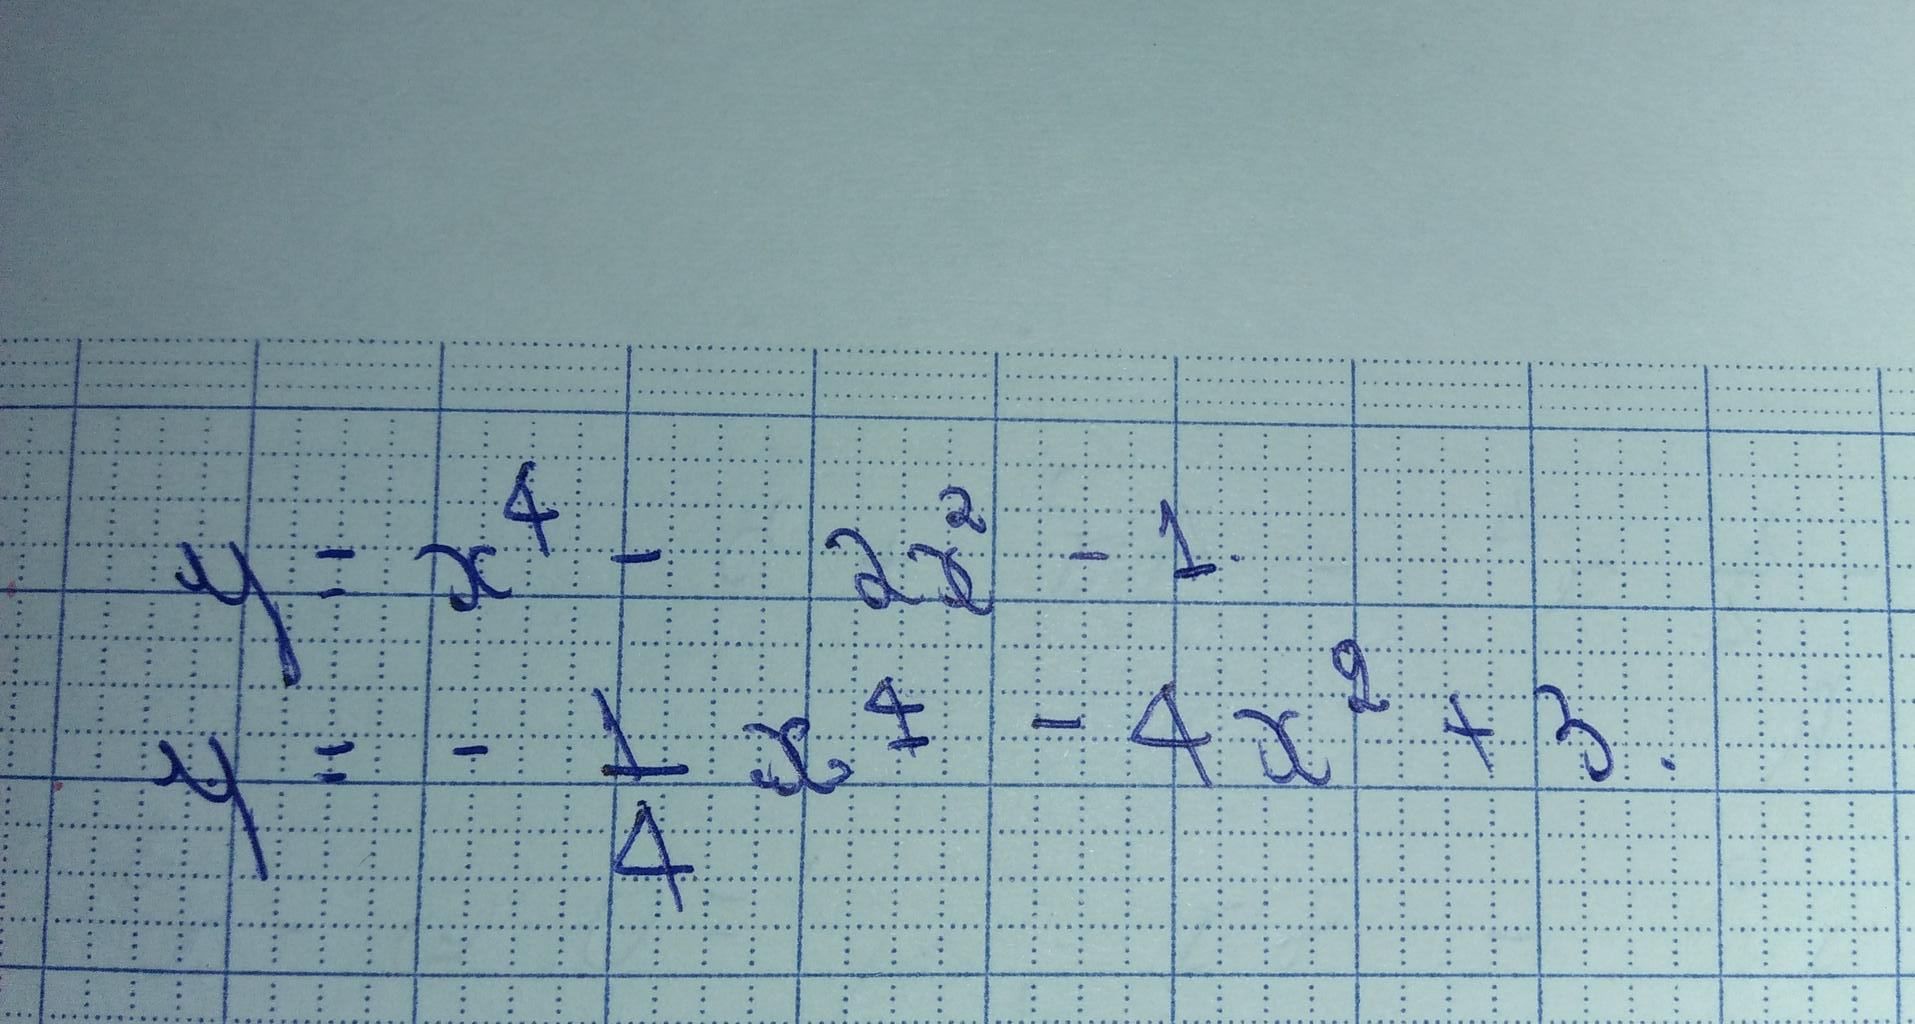 y = x⁴ - 2x² - 1.
y = - 1/4 x⁴ - 4x² + 3.